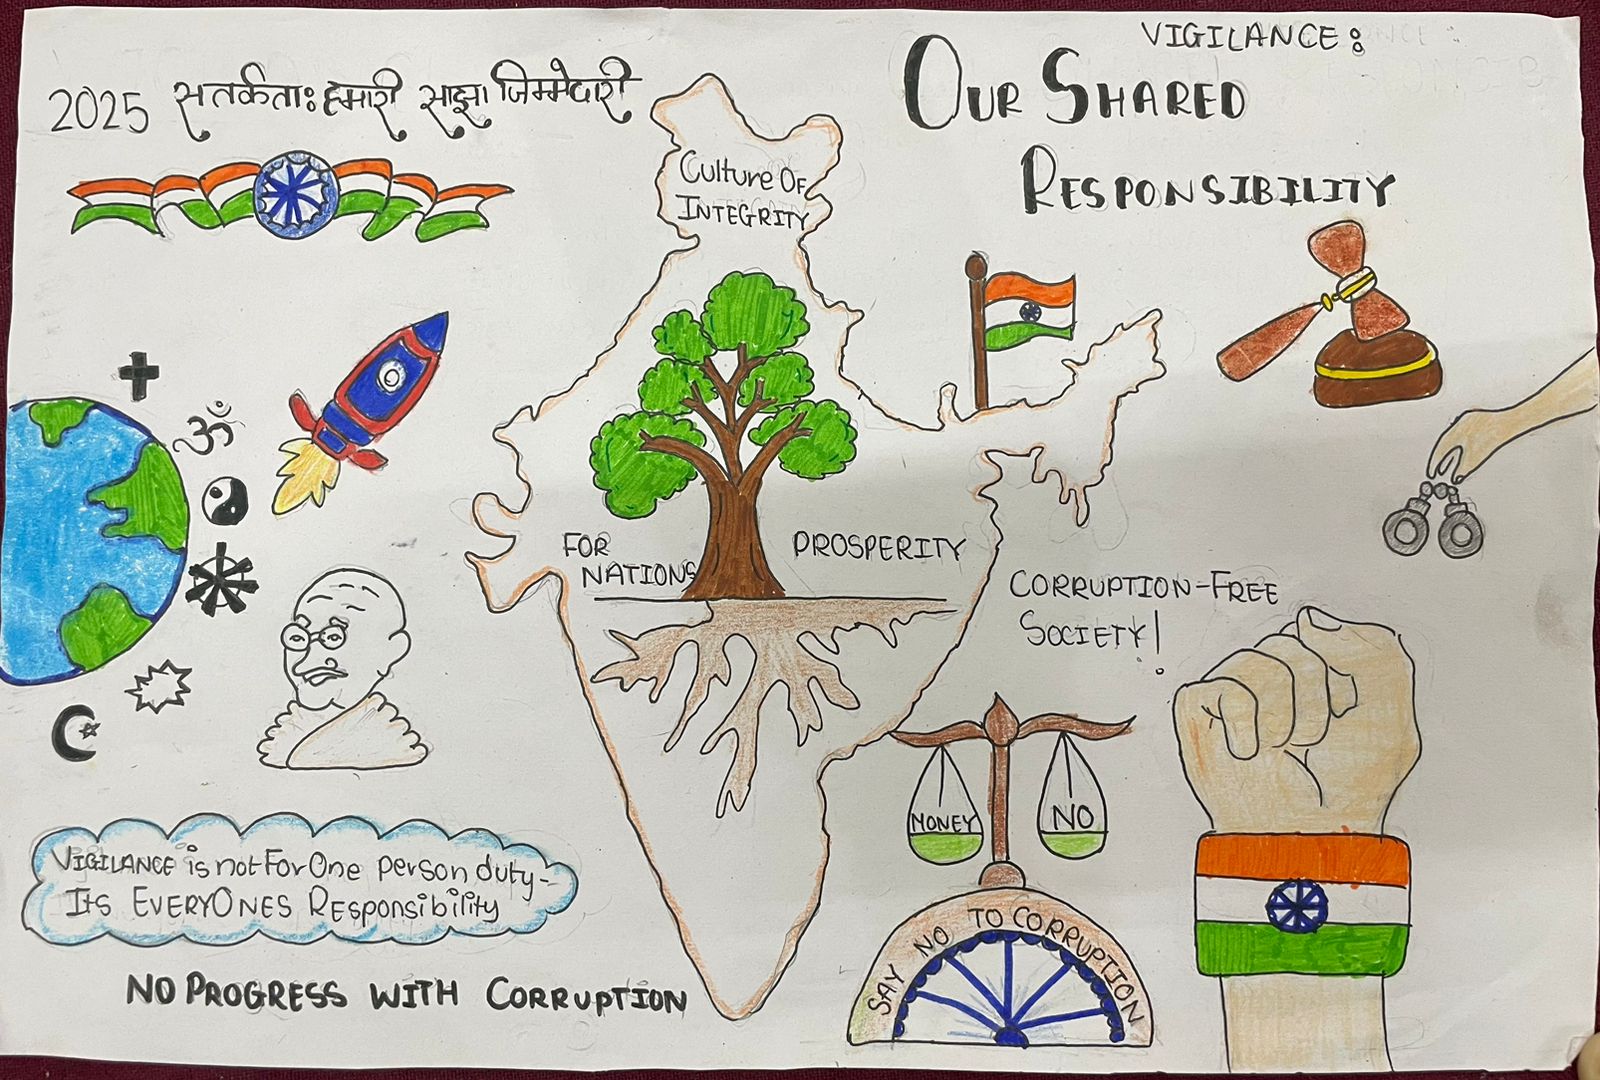 2025 सतर्कता: हमारी साझा जिम्मेदारी
VIGILANCE:
OUR SHARED
RESPONSIBILITY
Culture OF
INTEGRITY
FOR
NATIONS
PROSPERITY
CORRUPTION-FREE
SOCIETY!
MONEY
NO
SAY NO TO CORRUPTION
VIGILANCE is not For One person duty-
Its EVERYONES Responsibility
NO PROGRESS WITH CORRUPTION
ॐ